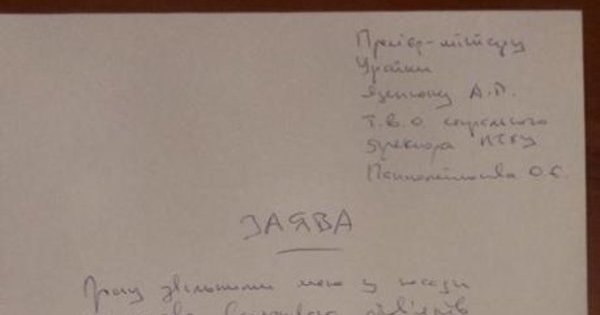 Прем'єр-міністру
України
Яценюку А.П.
Т.В.О. генерального
директора НТКУ
Пантелеймонова О.Є.
ЗАЯВА
Прошу звільнити мене з посади